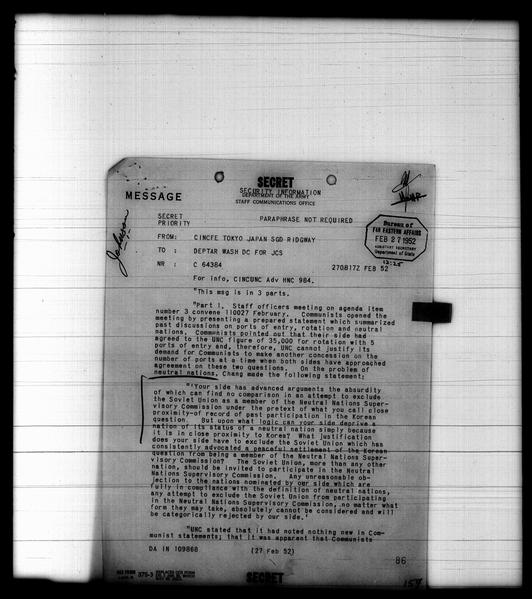 SECRET
SECURITY INFORMATION
DEPARTMENT OF THE ARMY
STAFF COMMUNICATIONS OFFICE
MESSAGE
SECRET
PRIORITY
PARAPHRASE NOT REQUIRED
Johnson
FROM: CINCFE TOKYO JAPAN SGD RIDGWAY
TO : DEPTAR WASH DC FOR JCS
NR : C 64384
270817Z FEB 52
Bureau of
FAR EASTERN AFFAIRS
FEB 27 1952
ASSISTANT SECRETARY
Department of State
12:25
For info, CINCUNC Adv HNC 984.
"This msg is in 3 parts.
"Part 1. Staff officers meeting on agenda item
number 3 convene 110027 February. Communists opened the
meeting by presenting a prepared statement which summarized
past discussions on ports of entry, rotation and neutral
nations. Communists pointed out that their side had
agreed to the UNC figure of 35,000 for rotation with 5
ports of entry and, therefore, UNC cannot justify its
demand for Communists to make another concession on the
number of ports at a time when both sides have approached
agreement on these two questions. On the problem of
neutral nations, Chang made the following statement:
"'Your side has advanced arguments the absurdity
of which can find no comparison in an attempt to exclude
the Soviet Union as a member of the Neutral Nations Super-
visory Commission under the pretext of what you call close
proximity-of record of past participation in the Korean
question. But upon what logic can your side deprive a
nation of its status of a neutral nation simply because
it is in close proximity to Korea? What justification
does your side have to exclude the Soviet Union which has
consistently advocated a peaceful settlement of the Korean
question from being a member of the Neutral Nations Super-
visory Commission? The Soviet Union, more than any other
nation, should be invited to participate in the Neutral
Nations Supervisory Commission. Any unreasonable ob-
jection to the nations nominated by our side which are
fully in compliance with the definition of neutral nations,
any attempt to exclude the Soviet Union from participating
in the Neutral Nations Supervisory Commission, no matter what
form they may take, absolutely cannot be considered and will
be categorically rejected by our side.'
"UNC stated that it had noted nothing new in Com-
munist statements; that it was apparent that Communists
DA IN 109868
(27 Feb 52)
86
375-3
SECRET
157